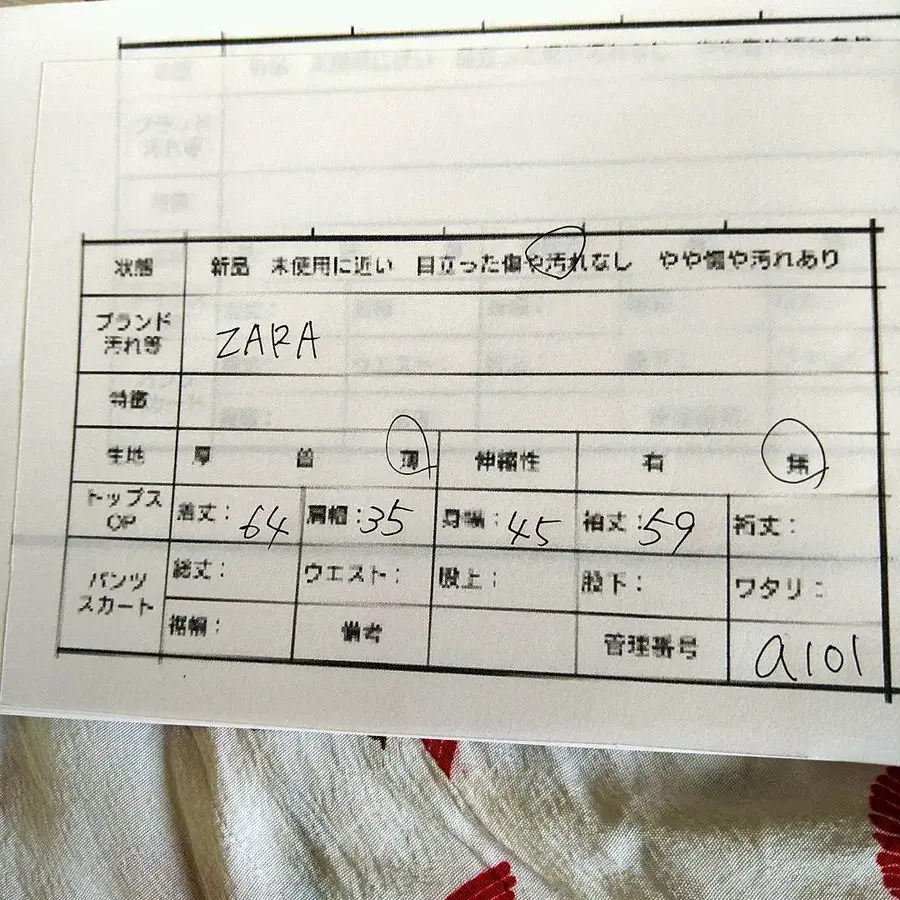 状態 新品 未使用に近い 目立った傷や汚れなし やや傷や汚れあり
ブランド
汚れ等 ZARA
特徴
生地 厚 普 薄 伸縮性 有 無
トップス
OP 着丈: 64 肩幅: 35 身幅: 45 袖丈: 59 裄丈:
パンツ
スカート 総丈: ウエスト: 股上: 股下: ワタリ:
裾幅: 備考 管理番号 a101